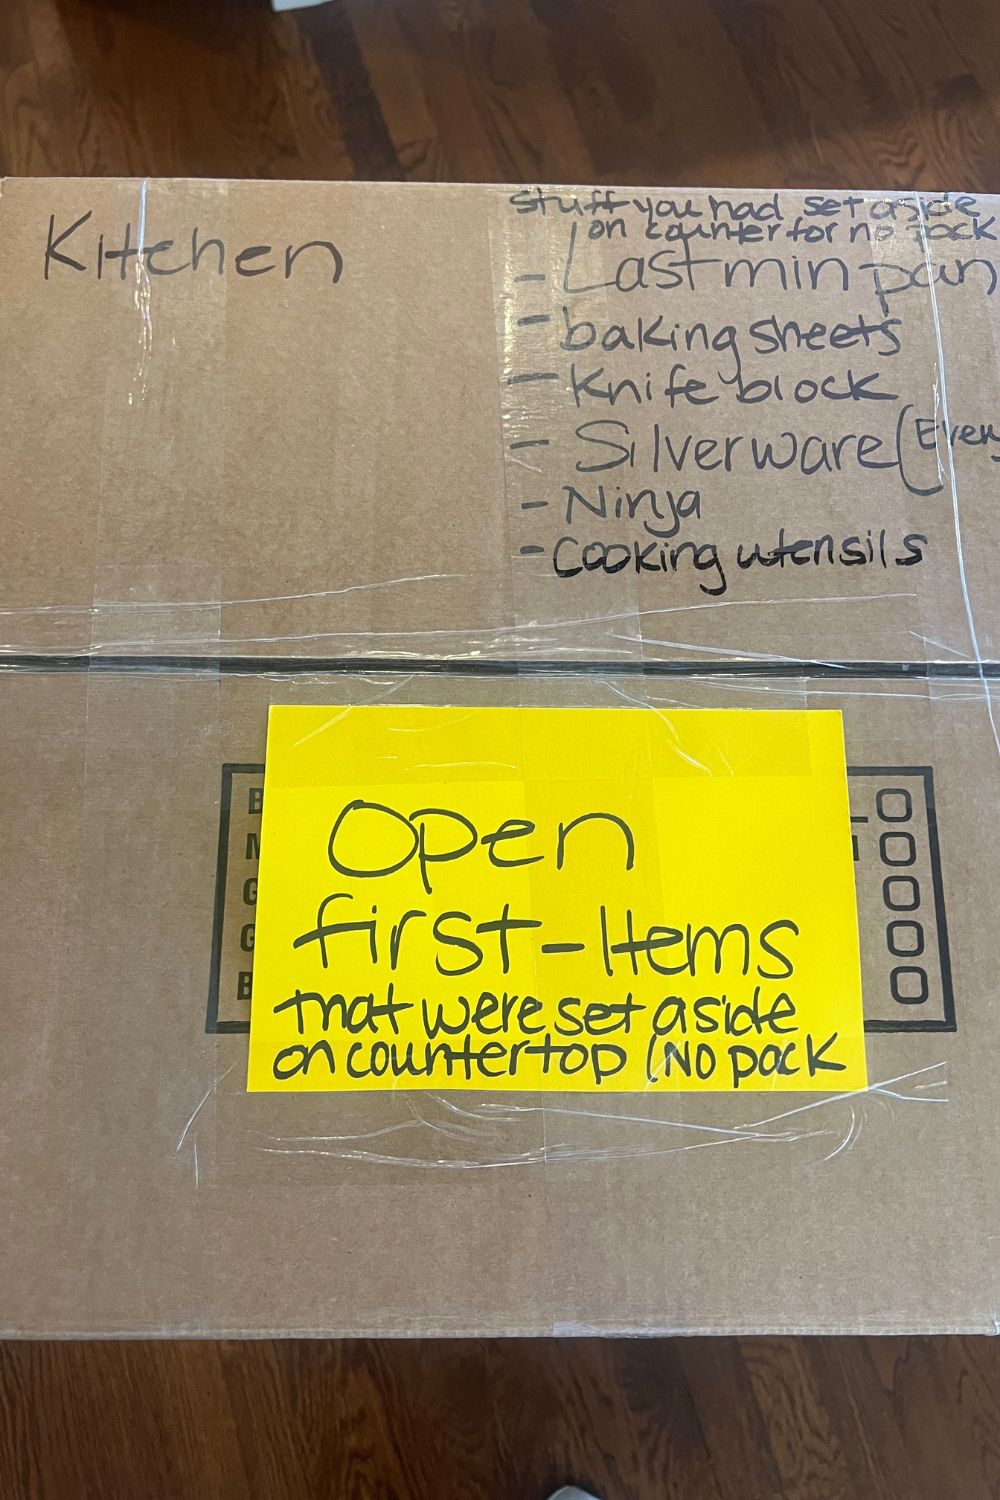 Kitchen
stuff you had set aside
on counter for no pack
- Last min pan
- baking sheets
- Knife block
- Silverware (Every
- Ninja
- Cooking utensils
Open
first - Items
that were set aside
on countertop (No pack